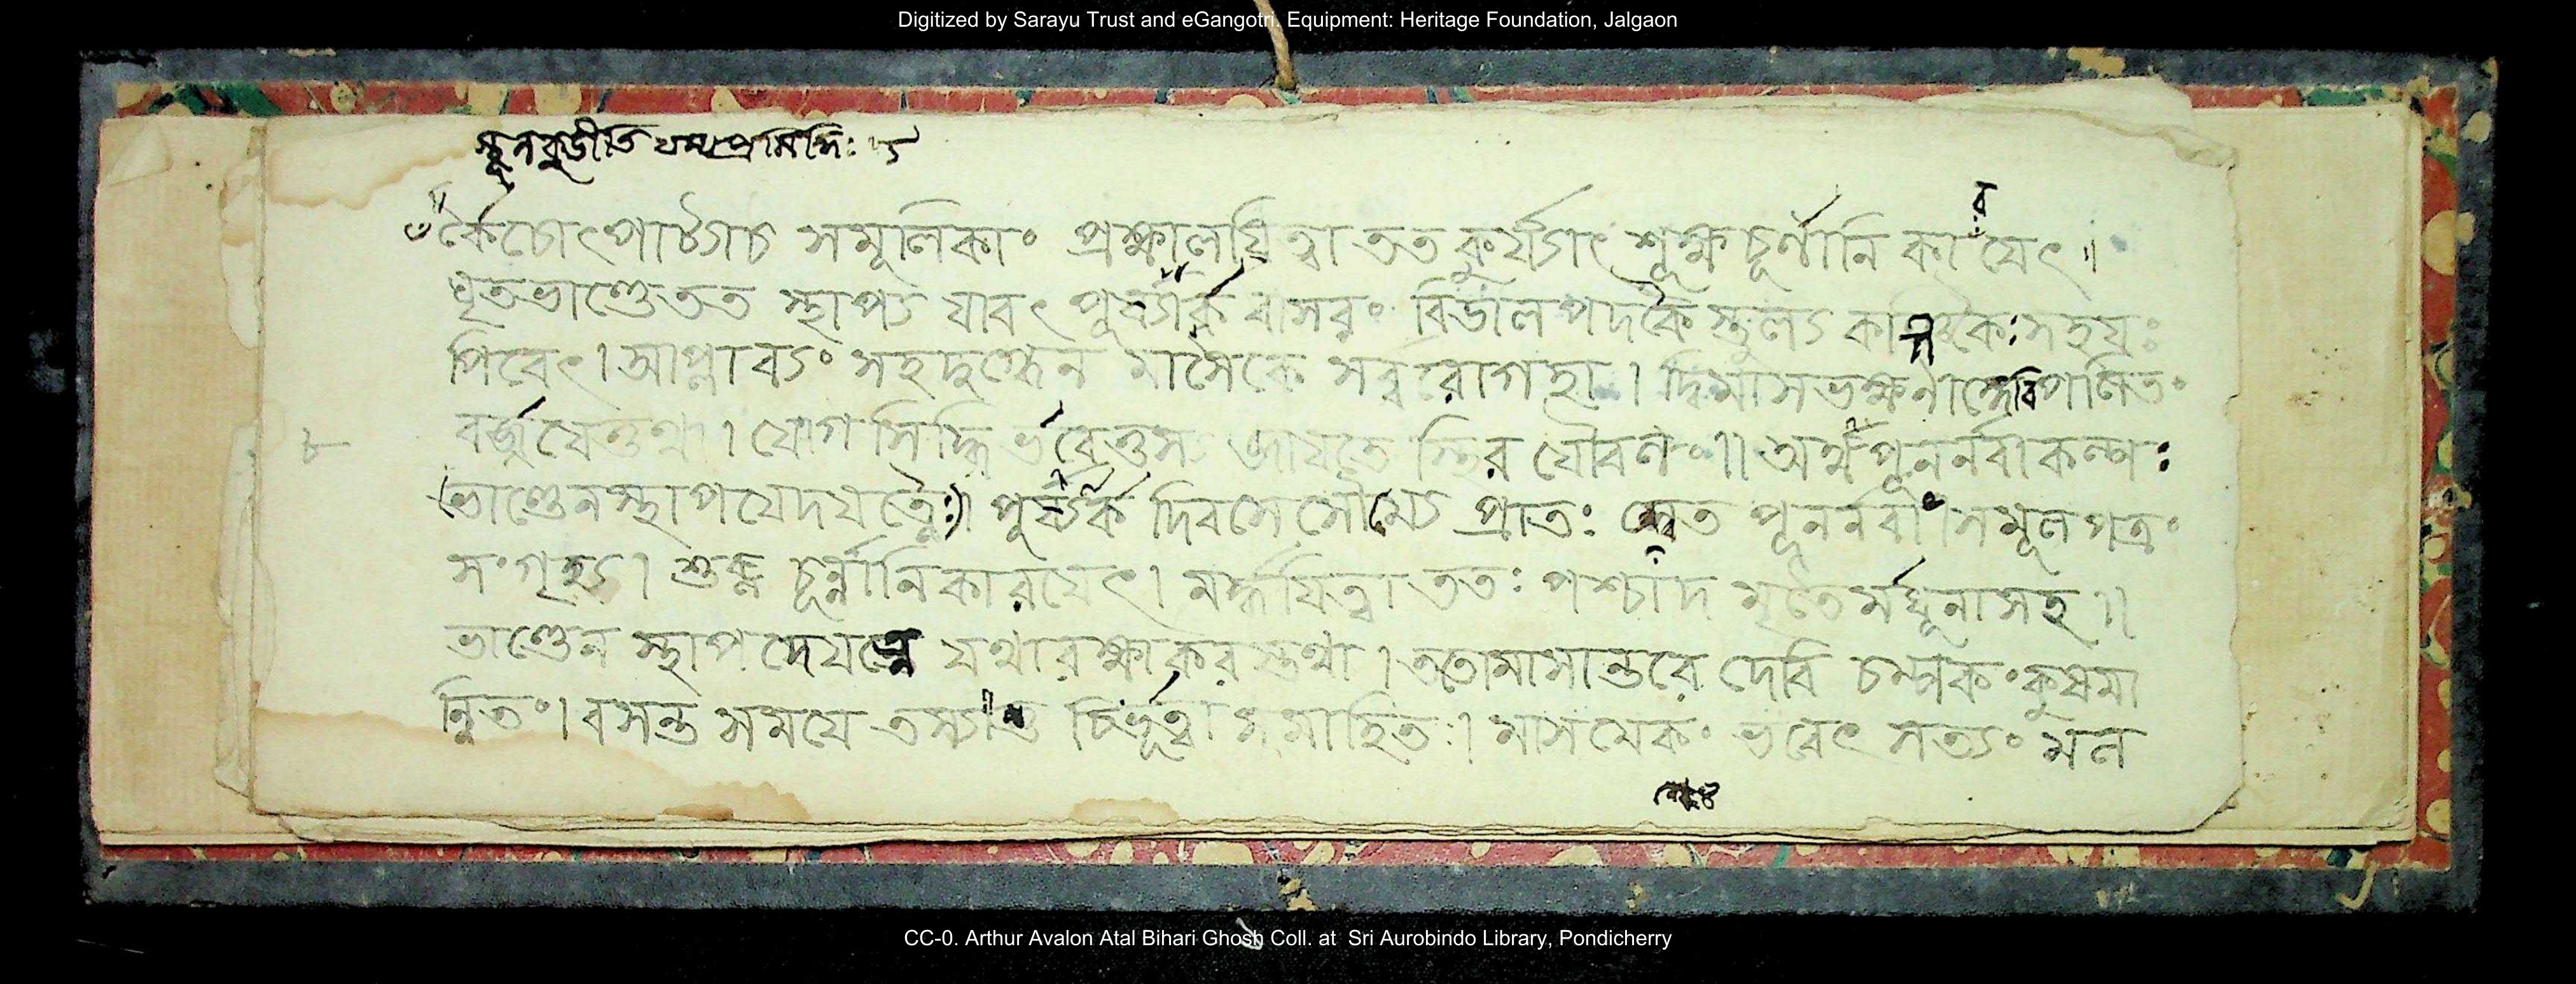 Digitized by Sarayu Trust and eGangotri. Equipment: Heritage Foundation, Jalgaon
র্কৈচোৎপাট্যাচ সমূলিকাং প্রক্ষালয়িত্বা তত কুর্য্যাৎ শূক্ষ্ম চূর্ণানি কাযেৎ ॥
র
ঘৃতভাণ্ডে তত স্থাপ্য যাবৎ পূষ্যার্ক বাসরং বিডাল পদকৈ স্তুল্য সহয়ঃ
পিবেৎ। আপ্লাব্যং সহদুগ্ধেন মাসৈকে সর্ব্বরোগহা। দ্বিমাস ভক্ষনা
৮
যোগ সিদ্ধি র্ভবেত্তস্য জাযতে স্থির যৌবনং॥ অথ পূনর্নবা কল্পঃ
ভাণ্ডেনস্থাপযেদযত্নৈঃ। পুষ্যর্ক দিবসে সৌম্যে প্রাতঃ শ্বেত পূনর্নবা। সমূল পত্রং
সংগৃহ্য। শুক্ষ্ণ চূর্ন্নানি কারযেৎ। মর্দ্ধযিত্বা ততঃ পশ্চাদ র্মধূনাসহ॥
ভাণ্ডেন স্থাপদেযত্নে যথারক্ষাকরস্তথা। ততোমাসান্তরে দেবি চম্পকং কুষমা
ন্বিতং। বসন্ত সময়ে চির্ভূত্বা সমাহিতঃ। মাসমেকং ভবেৎ সত্যং মল
CC-0. Arthur Avalon Atal Bihari Ghosh Coll. at Sri Aurobindo Library, Pondicherry